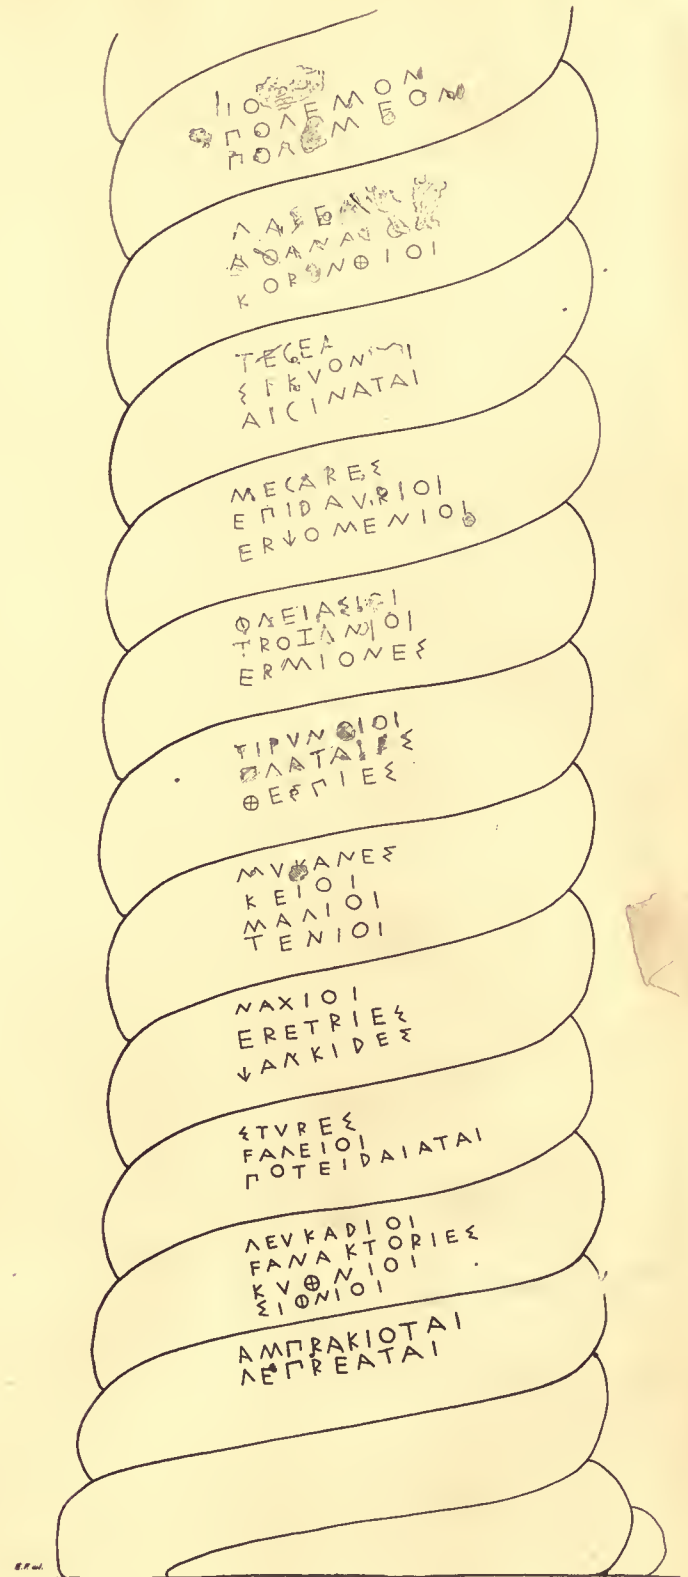 ΠΟΛΕΜΟΝ
ΑΘΑΝΑΙΟΙ
ΚΟΡΙΝΘΙΟΙ
ΤΕΓΕΑ
ΣΕΚΥΟΝΙΟΙ
ΑΙΓΙΝΑΤΑΙ
ΜΕΓΑΡΕΣ
ΕΠΙΔΑΥΡΙΟΙ
ΕΡΧΟΜΕΝΙΟΙ
ΦΛΕΙΑΣΙΟΙ
ΤΡΟΖΑΝΙΟΙ
ΕΡΜΙΟΝΕΣ
ΤΙΡΥΝΘΙΟΙ
ΠΛΑΤΑΙΕΣ
ΘΕΣΠΙΕΣ
ΜΥΚΑΝΕΣ
ΚΕΙΟΙ
ΜΑΛΙΟΙ
ΤΕΝΙΟΙ
ΝΑΧΙΟΙ
ΕΡΕΤΡΙΕΣ
ΧΑΛΚΙΔΕΣ
ΣΤΥΡΕΣ
ϜΑΛΕΙΟΙ
ΠΟΤΕΙΔΑΙΑΤΑΙ
ΛΕΥΚΑΔΙΟΙ
ϜΑΝΑΚΤΟΡΙΕΣ
ΚΥΘΝΙΟΙ
ΣΙΦΝΙΟΙ
ΑΜΠΡΑΚΙΟΤΑΙ
ΛΕΠΡΕΑΤΑΙ